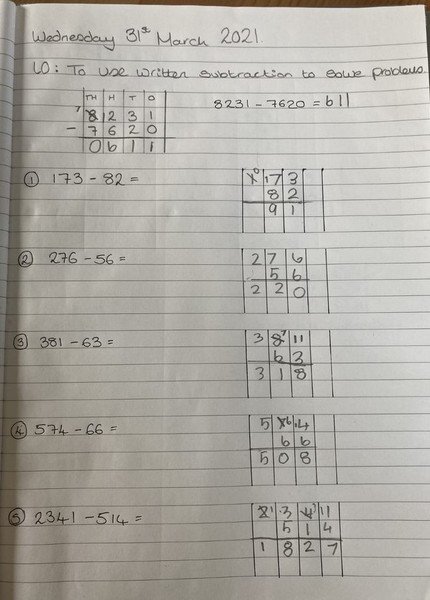 Wednesday 31st March 2021.
LO: To use written subtraction to solve problems
TH H T O
7 8 2 3 1
8231 - 7620 = 611
- 7 6 2 0
0 6 1 1
① 173 - 82 =
1 0 17 3
8 2
9 1
② 276 - 56 =
2 7 6
5 6
2 2 0
③ 381 - 63 =
3 8 7 11
6 3
3 1 8
④ 574 - 66 =
5 7 6 14
6 6
5 0 8
⑤ 2341 - 514 =
2 1 13 4 3 11
5 1 4
1 8 2 7